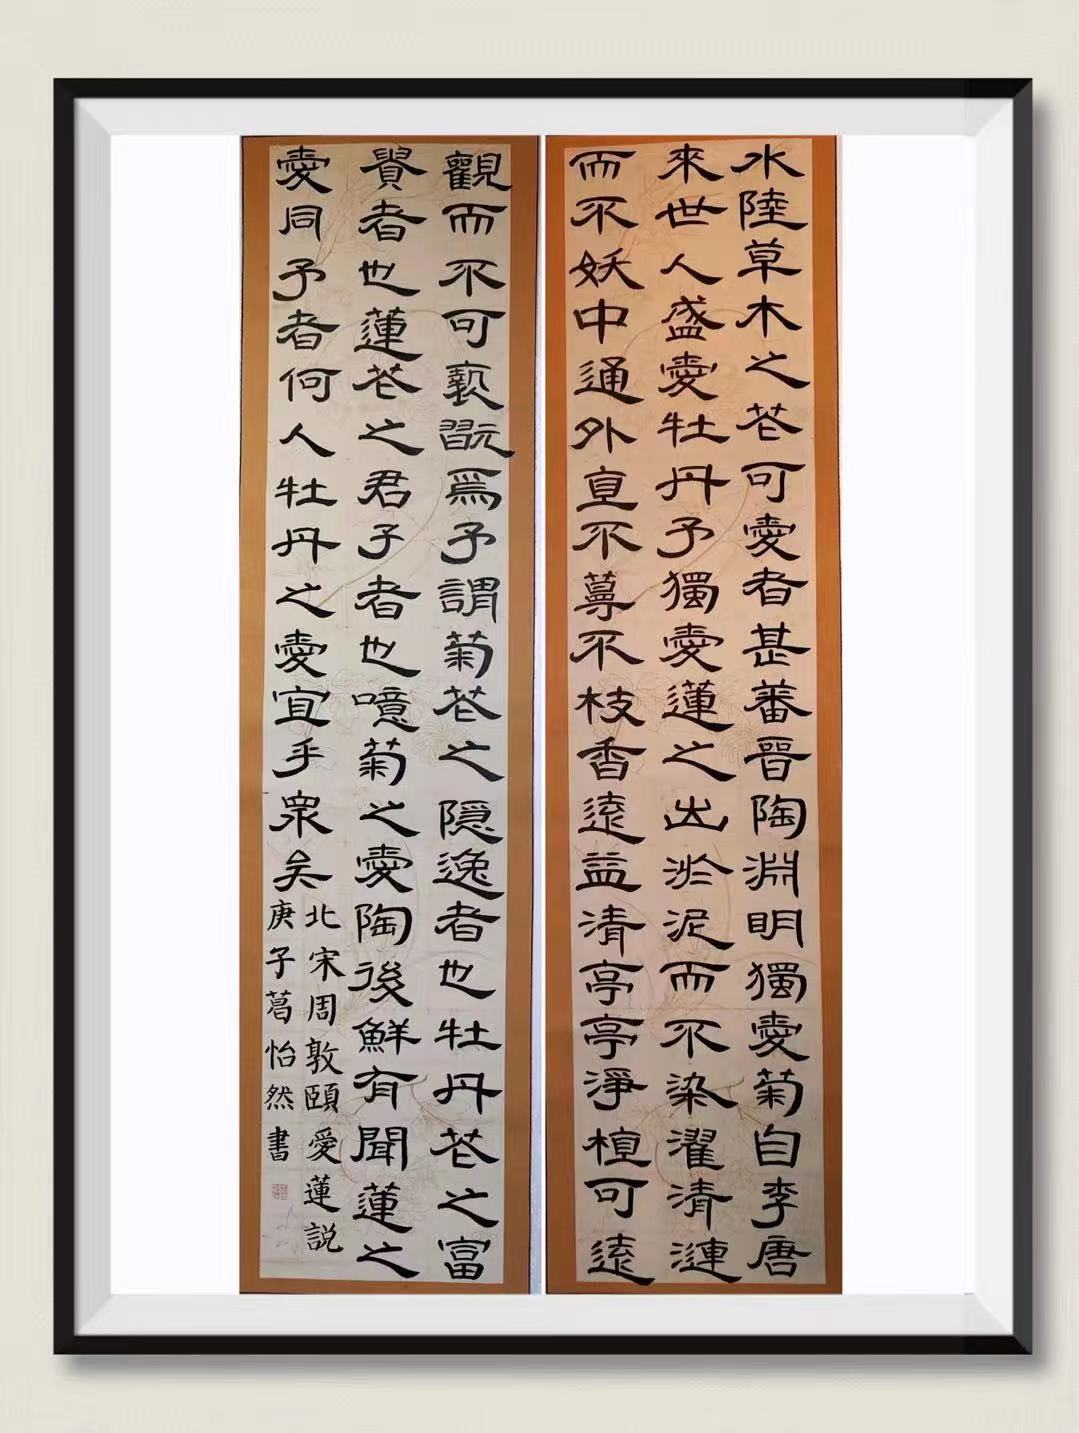 水陸草木之花可愛者甚蕃晉陶淵明獨愛菊自李唐
來世人盛愛牡丹予獨愛蓮之出淤泥而不染濯清漣
而不妖中通外直不蔓不枝香遠益清亭亭淨植可遠
觀而不可褻翫焉予謂菊花之隱逸者也牡丹花之富
貴者也蓮花之君子者也噫菊之愛陶後鮮有聞蓮之
愛同予者何人牡丹之愛宜乎衆矣
北宋周敦頤愛蓮説
庚子葛怡然書